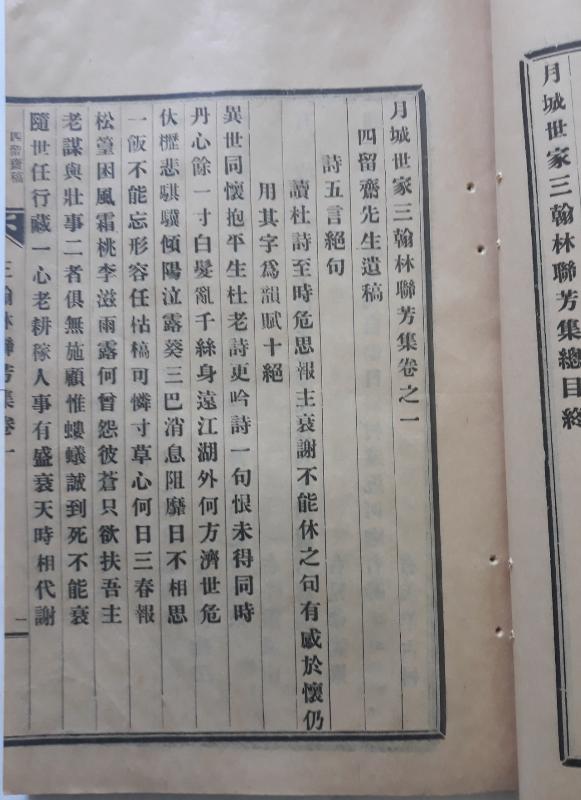 月城世家三翰林聯芳集總目終
月城世家三翰林聯芳集卷之一
四留齋先生遺稿
詩五言絕句
讀杜詩至時危思報主衰謝不能休之句有感於懷仍
用其字爲韻賦十絕
異世同懷抱平生杜老詩更吟詩一句恨未得同時
丹心餘一寸白髮亂千絲身遠江湖外何方濟世危
伏櫪悲騏驥傾陽泣露葵三巴消息阻靡日不相思
一飯不能忘形容任枯槁可憐寸草心何日三春報
松篁困風霜桃李滋雨露何曾怨彼蒼只欲扶吾主
老謀與壯事二者俱無施顧惟螻蟻誠到死不能衰
隨世任行藏一心老耕稼人事有盛衰天時相代謝
四留齋稿
三翰林聯芳集卷一
一